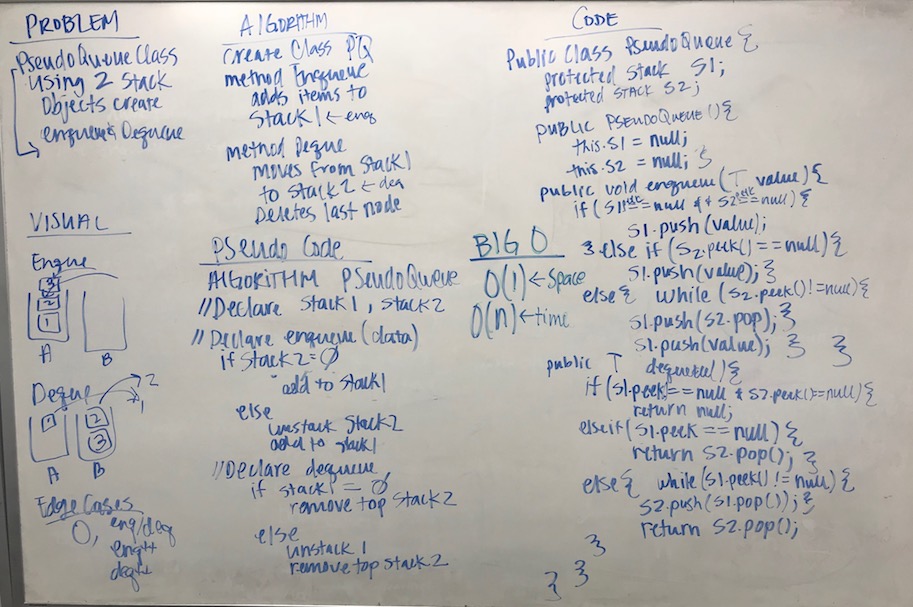 PROBLEM
PseudoQueue Class
using 2 Stack
Objects create
enqueue & Dequeue
VISUAL
Enque
3
2
1
A B
Deque
2
1
1
2
3
A B
Edge Cases
0, enq/deq
enq++
deq++
ALGORITHM
Create Class PQ
method Enqueue
adds items to
Stack1 ← enq
method Deque
moves from Stack1
to Stack2 ← deq
Deletes last node
Pseudo Code
ALGORITHM PSeudoQueue
//Declare Stack1, Stack2
//Declare enqueue(data)
if Stack2 = ∅
add to Stack1
else
unstack Stack2
add to Stack1
//Declare dequeue
if Stack1 = ∅
remove top Stack2
else
unstack 1
remove top Stack2
BIG O
O(1) ← Space
O(n) ← time
CODE
Public Class PseudoQueue {
protected Stack S1;
protected STACK S2;
PUBLIC PSEUDOQUEUE() {
this.S1 = null;
this.S2 = null; }
public void enqueue(T value) {
if (S1 peek == null && S2 peek == null) {
S1.push(value);
} else if (S2.peek() == null) {
S1.push(value); }
else { while (S2.peek() != null) {
S1.push(S2.pop); }
S1.push(value); } }
public T dequeue() {
if (S1.peek) == null & S2.peek() == null) {
return null;
else if (S1.peek == null) {
return S2.pop(); }
else { while (S1.peek() != null) {
S2.push(S1.pop()); }
return S2.pop();
}
}
}